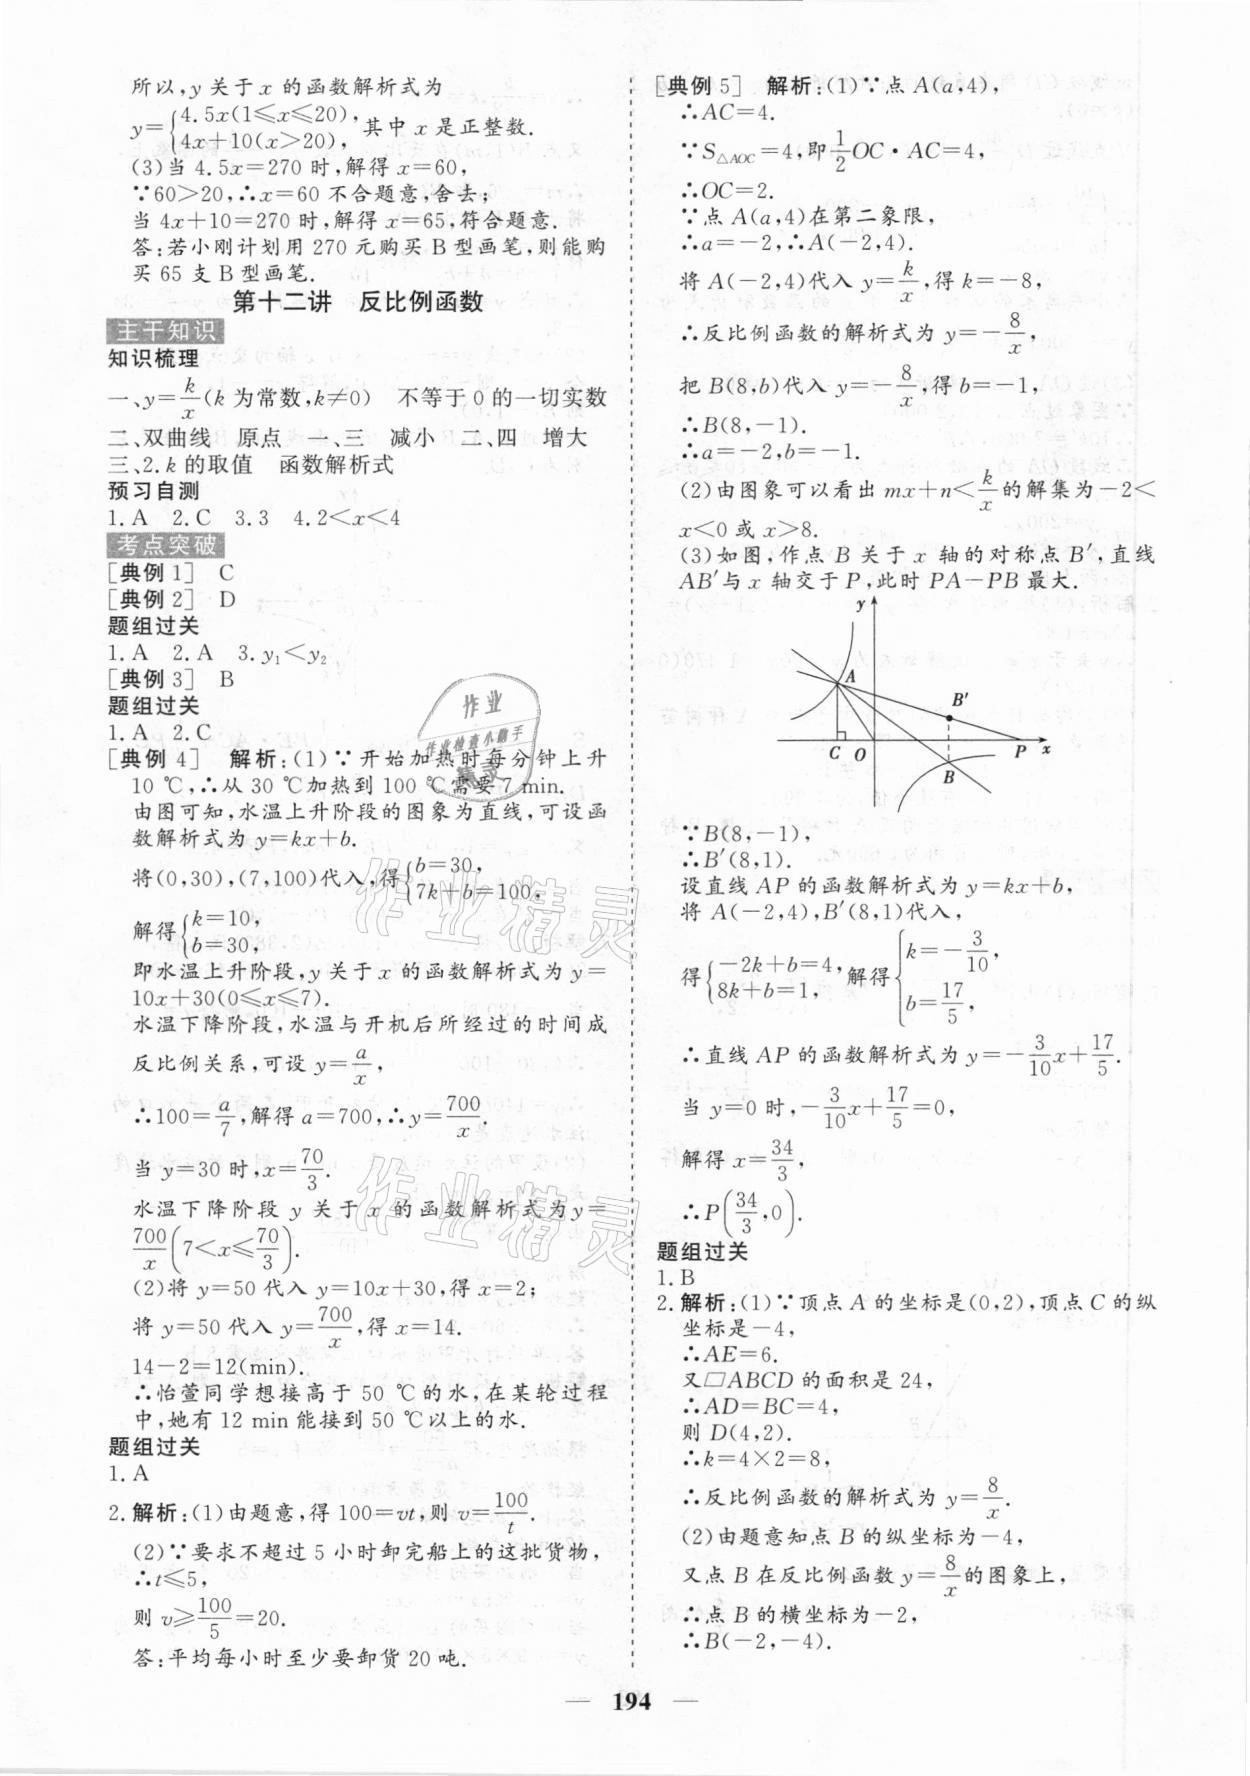 所以,y 关于 x 的函数解析式为
y={4.5x(1≤x≤20), 4x+10(x>20), 其中 x 是正整数.
(3)当 4.5x=270 时,解得 x=60,
∵60>20,∴x=60 不合题意,舍去;
当 4x+10=270 时,解得 x=65,符合题意.
答:若小刚计划用 270 元购买 B 型画笔,则能购
买 65 支 B 型画笔.
第十二讲 反比例函数
主干知识
知识梳理
一、y=k/x(k 为常数,k≠0) 不等于 0 的一切实数
二、双曲线 原点 一、三 减小 二、四 增大
三、2.k 的取值 函数解析式
预习自测
1.A 2.C 3.3 4.2<x<4
考点突破
[典例 1] C
[典例 2] D
题组过关
1.A 2.A 3.y₁<y₂
[典例 3] B
题组过关
1.A 2.C
[典例 4] 解析:(1)∵开始加热时每分钟上升
10 ℃,∴从 30 ℃加热到 100 ℃需要 7 min.
由图可知,水温上升阶段的图象为直线,可设函
数解析式为 y=kx+b.
将(0,30),(7,100)代入,得{b=30, 7k+b=100,
解得{k=10, b=30,
即水温上升阶段,y 关于 x 的函数解析式为 y=
10x+30(0≤x≤7).
水温下降阶段,水温与开机后所经过的时间成
反比例关系,可设 y=a/x,
∴100=a/7,解得 a=700,∴y=700/x.
当 y=30 时,x=70/3.
水温下降阶段 y 关于 x 的函数解析式为 y=
700/x(7<x≤70/3).
(2)将 y=50 代入 y=10x+30,得 x=2;
将 y=50 代入 y=700/x,得 x=14.
14-2=12(min).
∴怡萱同学想接高于 50 ℃的水,在某轮过程
中,她有 12 min 能接到 50 ℃以上的水.
题组过关
1.A
2.解析:(1)由题意,得 100=vt,则 v=100/t.
(2)∵要求不超过 5 小时卸完船上的这批货物,
∴t≤5,
则 v≥100/5=20.
答:平均每小时至少要卸货 20 吨.
[典例 5] 解析:(1)∵点 A(a,4),
∴AC=4.
∵S△AOC=4,即1/2OC·AC=4,
∴OC=2.
∵点 A(a,4)在第二象限,
∴a=-2,∴A(-2,4).
将 A(-2,4)代入 y=k/x,得 k=-8,
∴反比例函数的解析式为 y=-8/x,
把 B(8,b)代入 y=-8/x,得 b=-1,
∴B(8,-1).
∴a=-2,b=-1.
(2)由图象可以看出 mx+n<k/x的解集为-2<
x<0 或 x>8.
(3)如图,作点 B 关于 x 轴的对称点 B′,直线
AB′与 x 轴交于 P,此时 PA-PB 最大.
y
A
B′
C O P x
B
∵B(8,-1),
∴B′(8,1).
设直线 AP 的函数解析式为 y=kx+b,
将 A(-2,4),B′(8,1)代入,
得{-2k+b=4, 8k+b=1, 解得{k=-3/10, b=17/5,
∴直线 AP 的函数解析式为 y=-3/10x+17/5.
当 y=0 时,-3/10x+17/5=0,
解得 x=34/3,
∴P(34/3,0).
题组过关
1.B
2.解析:(1)∵顶点 A 的坐标是(0,2),顶点 C 的纵
坐标是-4,
∴AE=6.
又▱ABCD 的面积是 24,
∴AD=BC=4,
则 D(4,2).
∴k=4×2=8,
∴反比例函数的解析式为 y=8/x.
(2)由题意知点 B 的纵坐标为-4,
又点 B 在反比例函数 y=8/x的图象上,
∴点 B 的横坐标为-2,
∴B(-2,-4).
— 194 —
作业
作业检查小助手
精灵
作业精灵
作业精灵